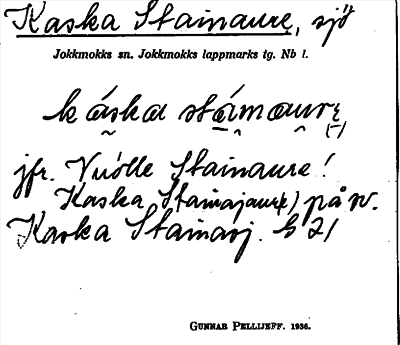 Kaska Stainaure, sjö
Jokkmokks sn. Jokkmokks lappmarks tg. Nb l.
káska stái̯nau̯rę (-)
jfr. Vuolle Stainaure!
Kaska Stainajaure) på n.
Kaska Stainasj. G 21
GUNNAR PELLIJEFF. 1936.